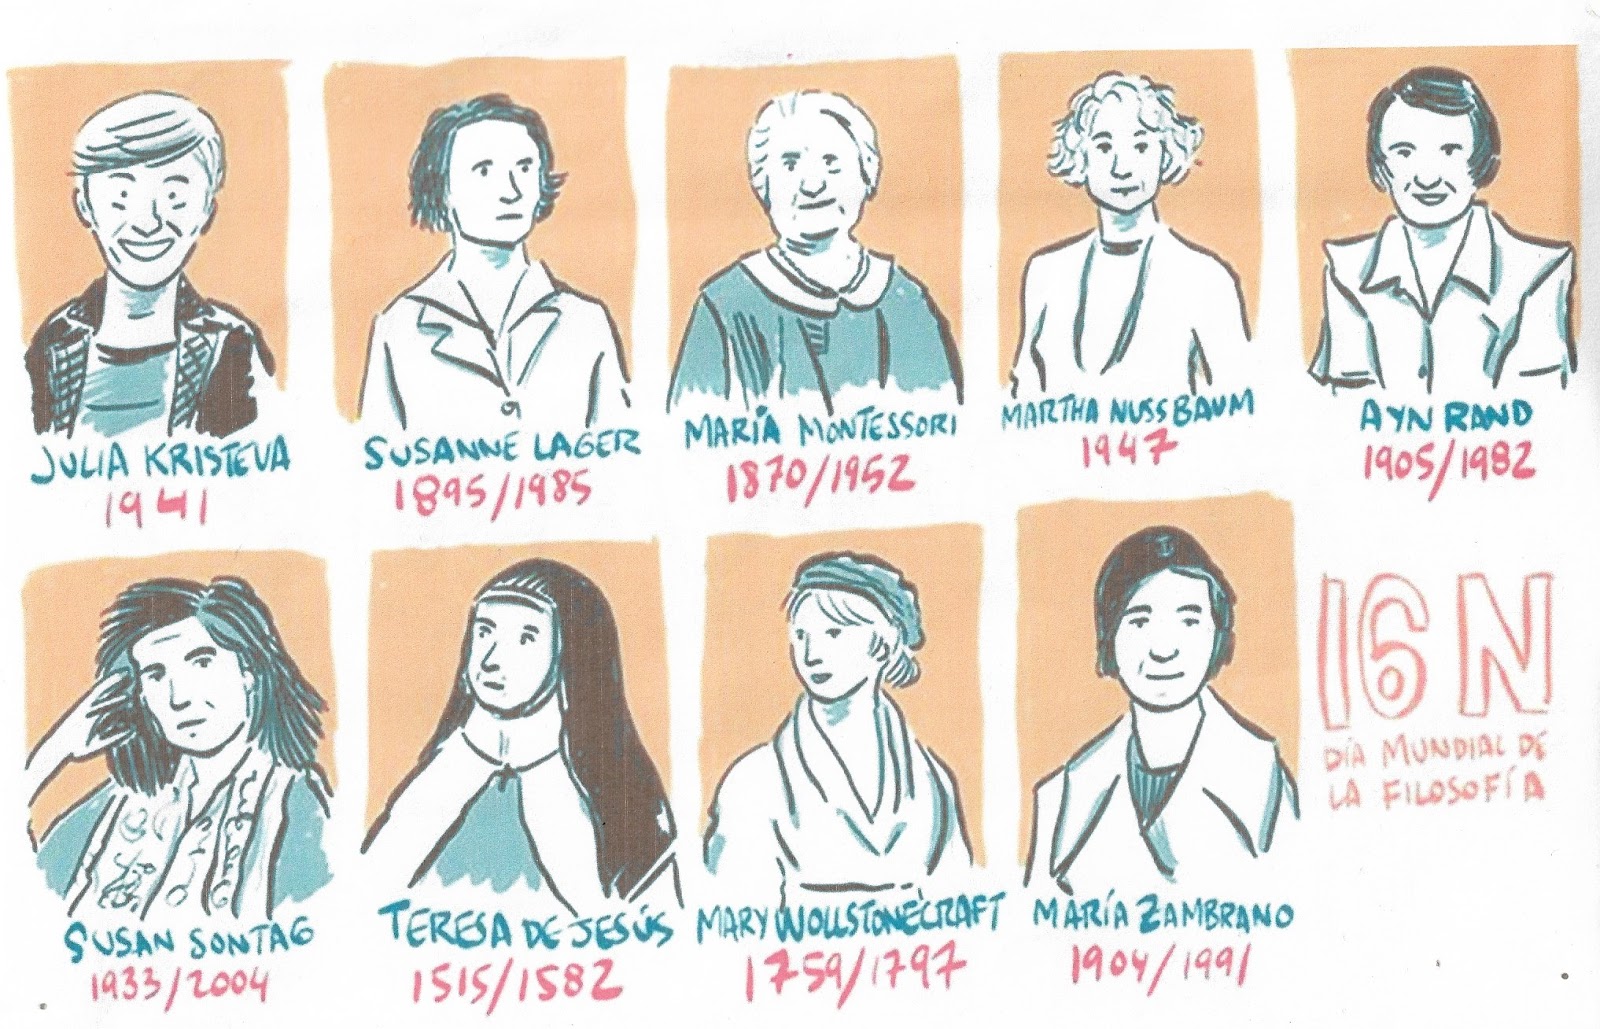 JULIA KRISTEVA
1941
SUSANNE LAGER
1895/1985
MARÍA MONTESSORI
1870/1952
MARTHA NUSSBAUM
1947
AYN RAND
1905/1982
SUSAN SONTAG
1933/2004
TERESA DE JESÚS
1515/1582
MARY WOLLSTONECRAFT
1759/1797
MARÍA ZAMBRANO
1904/1991
16 N
DÍA MUNDIAL DE
LA FILOSOFÍA